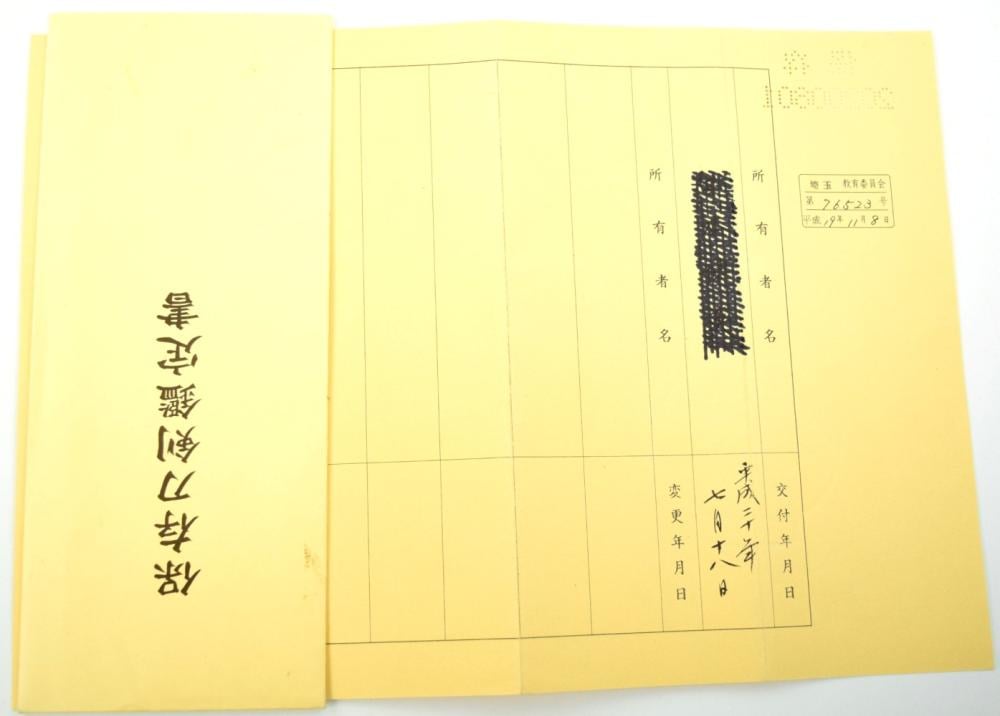 保存刀剣鑑定書
埼玉 教育委員会
第 76523 号
平成 19年 11月 8日
所有者名
交付年月日
平成二十年
七月十八日
所有者名
変更年月日